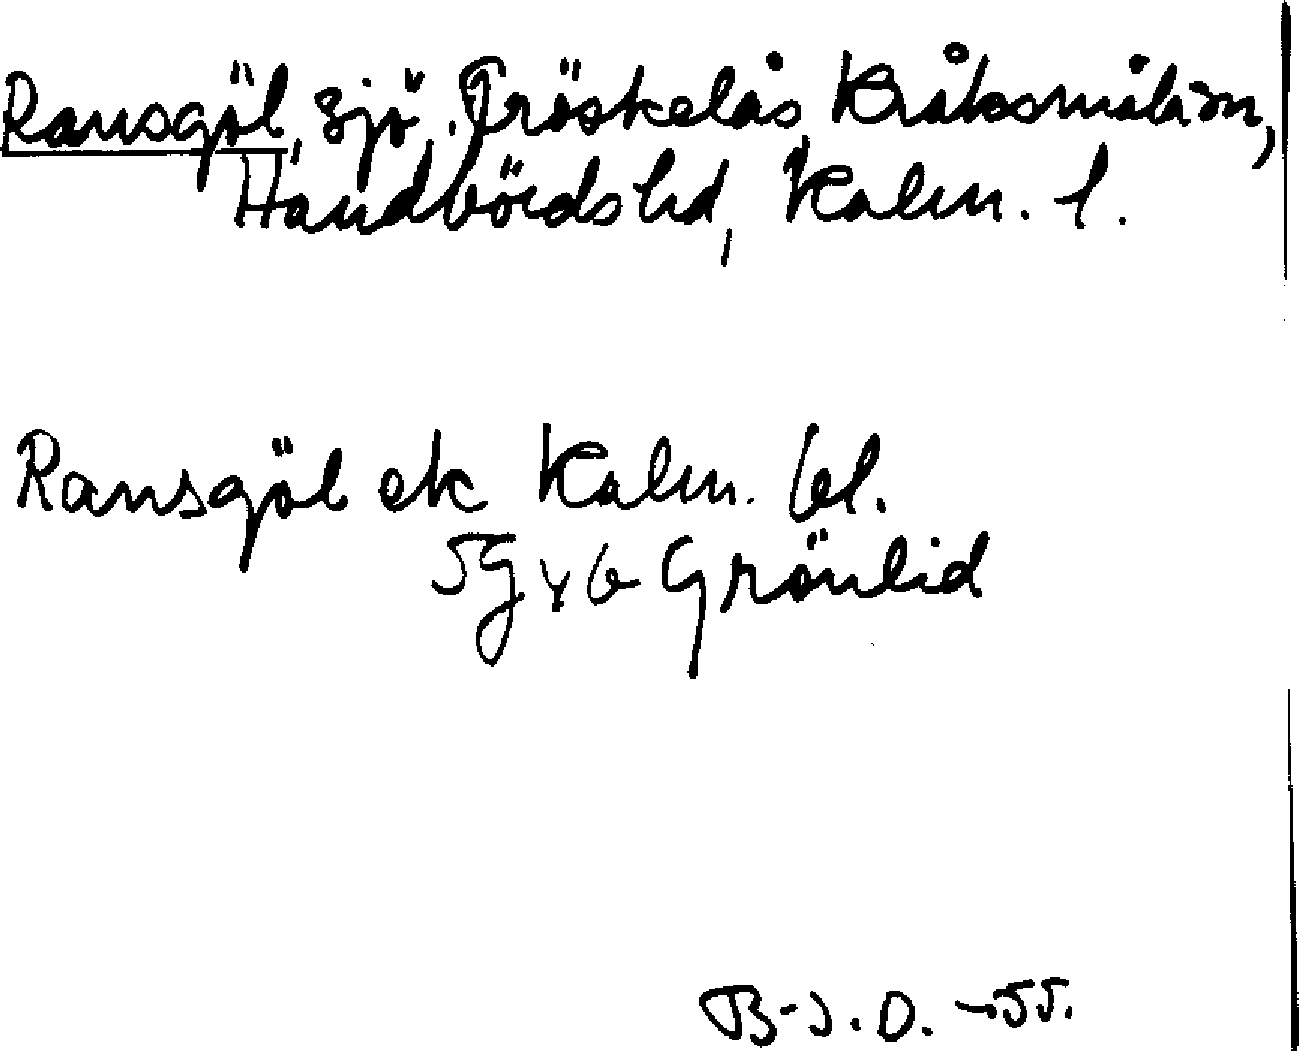 Ransgöl, sjö, Tröskelås, Kråksmåla sn,
Handbörds hd, Kalm. l.
Ransgöl ek Kalm. bl.
5G x 6 Grönlid
B-J.O. -55.